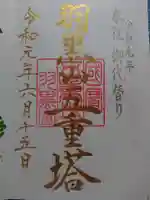 奉拝 御代替り
羽黒山五重塔
令和元年六月十五日